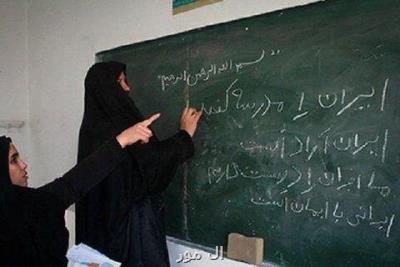 "بسم الله الرحمن الرحیم"
ایران را مدرسه
ایران آزاد است
ما ایران را دوست داریم
ایرانی با ایمان است
ال مور